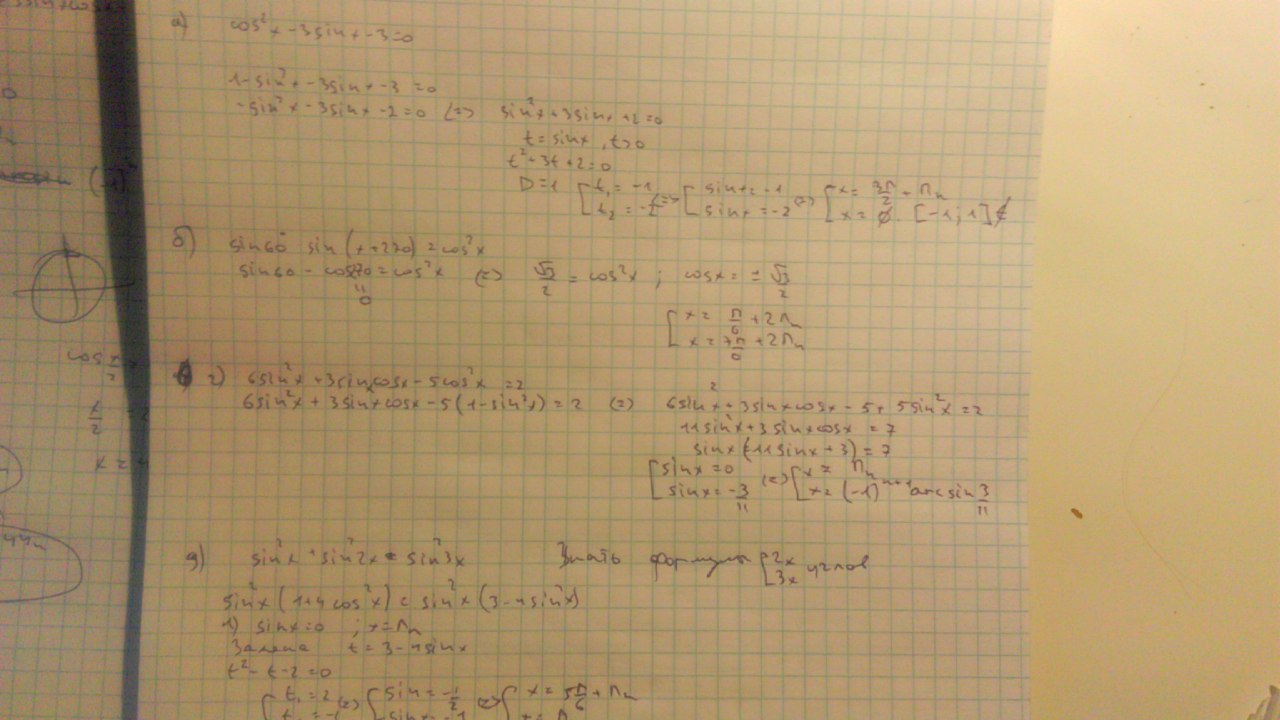 а) cos²x - 3sinx - 3 = 0
1 - sin²x - 3sinx - 3 = 0
-sin²x - 3sinx - 2 = 0 (=) sin²x + 3sinx + 2 = 0
t = sinx, t>0
t² + 3t + 2 = 0
D = 1 [t₁ = -1 t₂ = -2 (=) [sinx = -1 sinx = -2 (=) [x = 3π/2 + πn x = ∅. [-1;1]
б) sin60 sin(x+270) = cos²x
sin60 - cos270 = cos²x (=) √3/2 = cos²x ; cosx = ± √3/2
0
[x = π/6 + 2πn
x = 7π/6 + 2πn
г) 6sin²x + 3sinxcosx - 5cos²x = 2
6sin²x + 3sinxcosx - 5(1-sin²x) = 2 (=) 6sin²x + 3sinxcosx - 5 + 5sin²x = 2
11sin²x + 3sinxcosx = 7
sinx(11sinx + 3) = 7
[sinx = 0 sinx = -3/11 (=) [x = πn x = (-1)ⁿ⁺¹ arcsin 3/11
д) sin²x + sin²2x = sin²3x Знать формулы [2x 3x углов
sin²x(1+4cos²x) = sin²x(3-4sin²x)
1) sinx = 0 ; x = πn
Замена t = 3-4sin²x
t² - t - 2 = 0
[t₁ = 2 (=) [sin = -1/2 (=) [x = 5π/6 + πn
cos x/2
x/2
x =